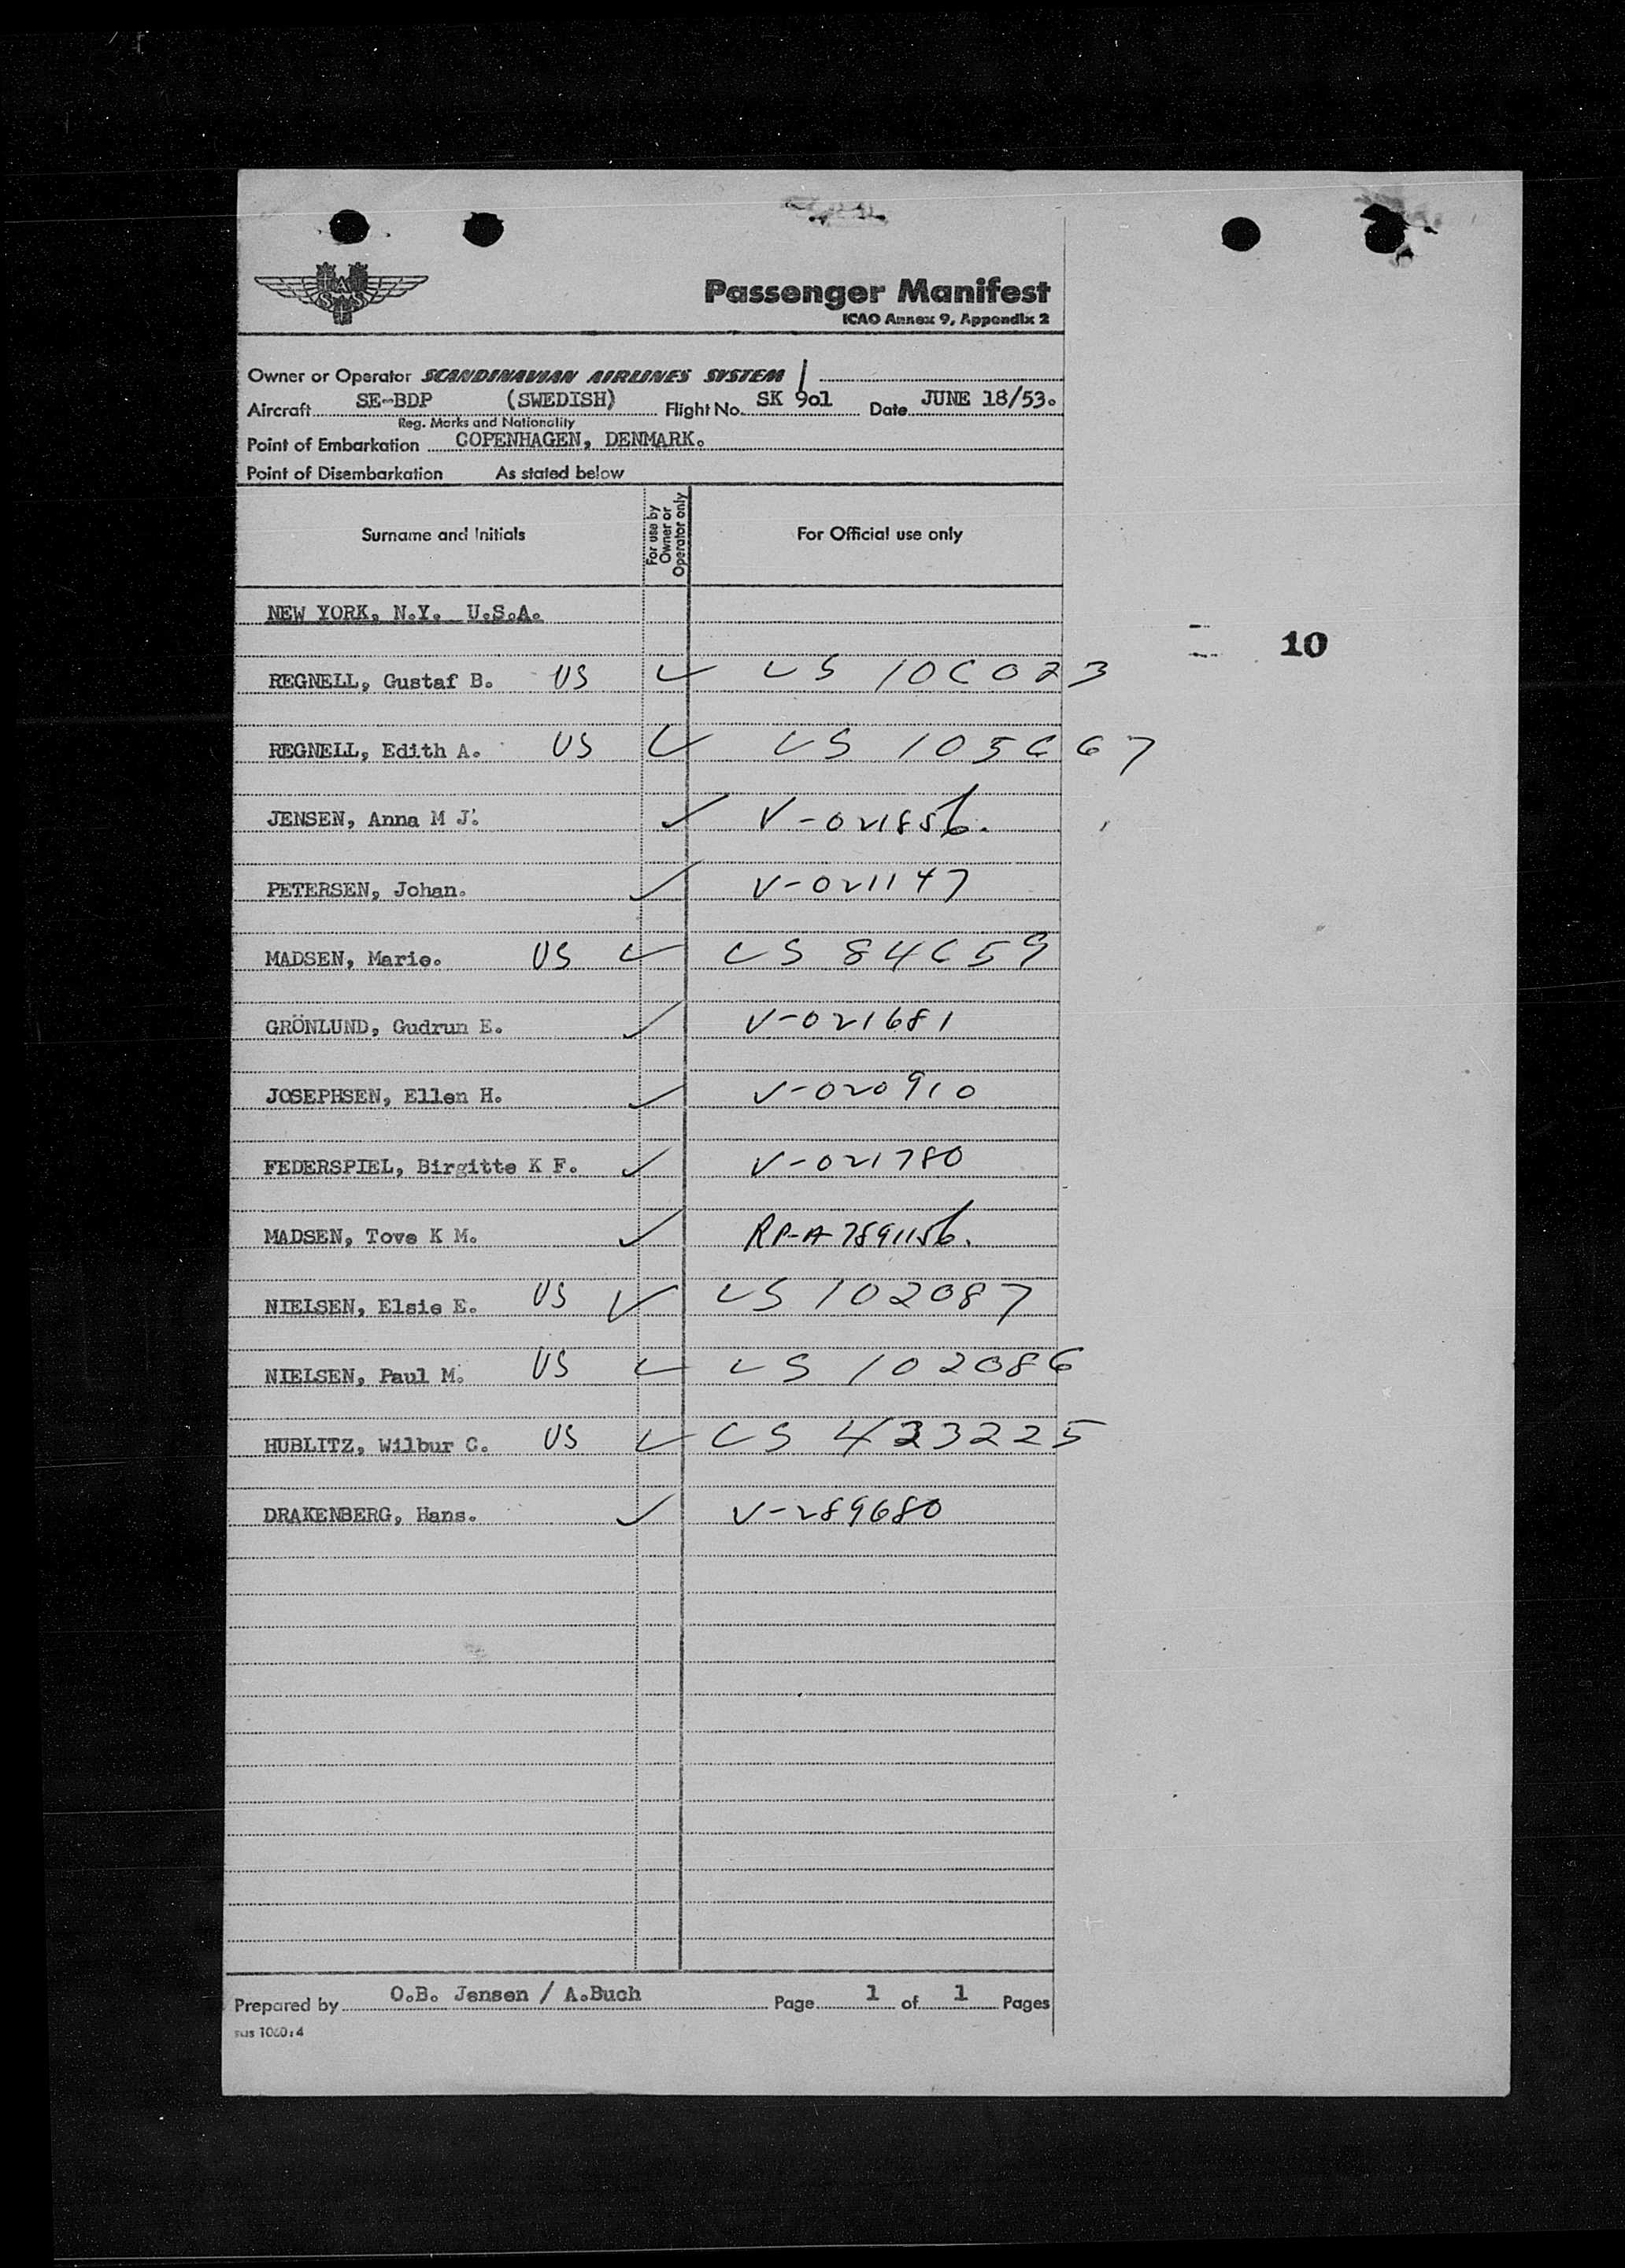 SAS
Passenger Manifest
ICAO Annex 9, Appendix 2
Owner or Operator SCANDINAVIAN AIRLINES SYSTEM
Aircraft SE-BDP (SWEDISH) Flight No. SK 901 Date JUNE 18/53.
Reg. Marks and Nationality
Point of Embarkation COPENHAGEN, DENMARK.
Point of Disembarkation As stated below
Surname and Initials For use by Owner or Operator only For Official use only
NEW YORK, N.Y. U.S.A.
10
REGNELL, Gustaf B. US ✓ US 106023
REGNELL, Edith A. US ✓ US 105667
JENSEN, Anna M J. ✓ V-021856.
PETERSEN, Johan. ✓ V-021147
MADSEN, Marie. US ✓ US 84659
GRÖNLUND, Gudrun E. ✓ V-021681
JOSEPHSEN, Ellen H. ✓ V-020910
FEDERSPIEL, Birgitte K F. ✓ V-021780
MADSEN, Tove K M. ✓ RP-A-7891156.
NIELSEN, Elsie E. US ✓ US 102087
NIELSEN, Paul M. US ✓ US 102086
HUBLITZ, Wilbur C. US ✓ US 423225
DRAKENBERG, Hans. ✓ V-289680
Prepared by O.B. Jensen / A.Buch Page 1 of 1 Pages
sas 1060:4